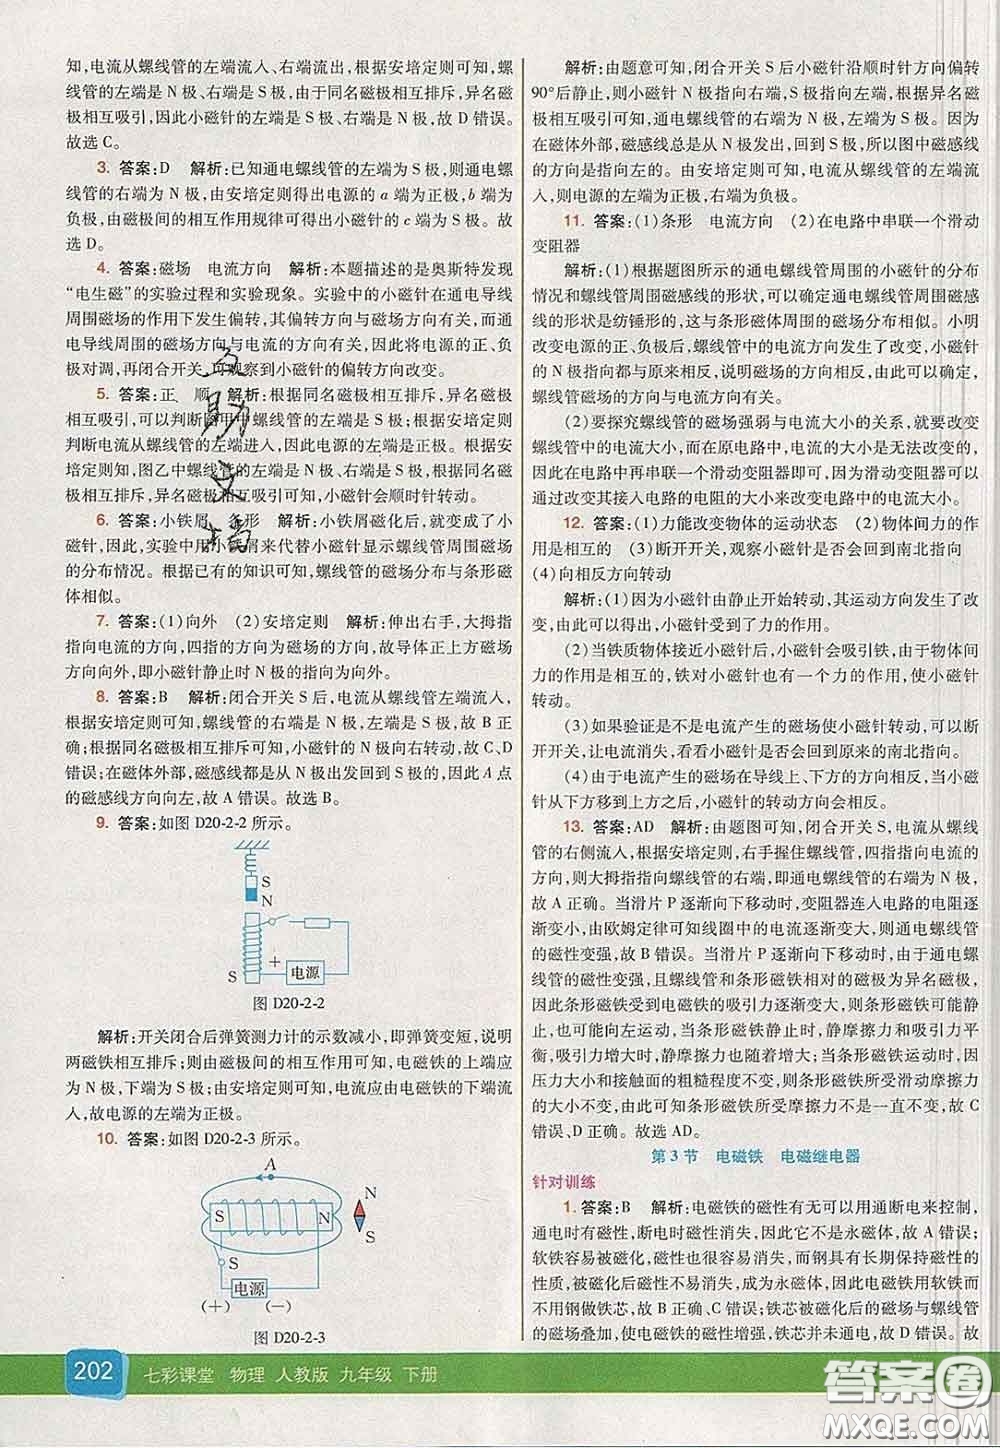 知,电流从螺线管的左端流入、右端流出,根据安培定则可知,螺
线管的左端是 N 极、右端是 S 极,由于同名磁极相互排斥,异名磁
极相互吸引,因此小磁针的左端是 S 极、右端是 N 极,故 D 错误。
故选 C。
3. 答案:D 解析:已知通电螺线管的左端为 S 极,则通电螺
线管的右端为 N 极,由安培定则得出电源的 a 端为正极,b 端为
负极,由磁极间的相互作用规律可得出小磁针的 c 端为 S 极。故
选 D。
4. 答案:磁场 电流方向 解析:本题描述的是奥斯特发现
“电生磁”的实验过程和实验现象。实验中的小磁针在通电导线
周围磁场的作用下发生偏转,其偏转方向与磁场方向有关,而通
电导线周围的磁场方向与电流的方向有关,因此将电源的正、负
极对调,再闭合开关,可观察到小磁针的偏转方向改变。
5. 答案:正 顺 解析:根据同名磁极相互排斥,异名磁极
相互吸引,可以判断图甲中螺线管的左端是 S 极;根据安培定则
判断电流从螺线管的左端进入,因此电源的左端是正极。根据安
培定则知,图乙中螺线管的左端是 N 极,右端是 S 极,根据同名磁
极相互排斥,异名磁极相互吸引可知,小磁针会顺时针转动。
6. 答案:小铁屑 条形 解析:小铁屑磁化后,就变成了小
磁针,因此,实验中用小铁屑来代替小磁针显示螺线管周围磁场
的分布情况。根据已有的知识可知,螺线管的磁场分布与条形磁
体相似。
7. 答案:(1)向外 (2)安培定则 解析:伸出右手,大拇指
指向电流的方向,四指的方向为磁场的方向,故导体正上方磁场
方向向外,即小磁针静止时 N 极的指向为向外。
8. 答案:B 解析:闭合开关 S 后,电流从螺线管左端流入,
根据安培定则可知,螺线管的右端是 N 极,左端是 S 极,故 B 正
确;根据同名磁极相互排斥可知,小磁针的 N 极向右转动,故 C、D
错误;在磁体外部,磁感线从 N 极出发,回到 S 极,因此 A 点
的磁感线方向向左,故 A 错误。故选 B。
9. 答案:如图 D20-2-2 所示。
S
N
S
+
电源
图 D20-2-2
解析:开关闭合后弹簧测力计的示数减小,即弹簧变短,说明
两磁铁相互排斥;则由磁极间的相互作用可知,电磁铁的上端应
为 N 极,下端为 S 极;由安培定则可知,电流应由电磁铁的下端流
入,故电源的左端为正极。
10. 答案:如图 D20-2-3 所示。
A
N
S
N
S
S
电源
(+) (−)
图 D20-2-3
202 七彩课堂 物理 人教版 九年级 下册
解析:由题意可知,闭合开关 S 后小磁针沿顺时针方向偏转
90°后静止,则小磁针 N 极指向右端,S 极指向左端,根据异名磁极
相互吸引可知,通电螺线管的左端为 S 极,右端为 N 极。因为在
在磁体外部,磁感线总是从 N 极出发,回到 S 极,所以 A 点磁感线
的方向是指向左的。由安培定则可知,电流从螺线管的左端流
入,则电源的左端为正极,右端为负极。
11. 答案:(1)条形 电流方向 (2)在电路中串联一个滑动
变阻器
解析:(1)根据题图所示的通电螺线管周围的小磁针的分布
情况和螺线管周围磁感线的形状,可以确定通电螺线管周围的磁
感线的形状是纺锤形的,这与条形磁体周围的磁场分布相似。小明
改变电源的正、负极后,螺线管中的电流方向发生了改变,小磁针
的 N 极指向都与原来相反,说明磁场的方向相反,由此可以确定
螺线管磁场的方向与电流方向有关。
(2)要探究螺线管的磁场强弱与电流大小的关系,就要改变
螺线管中的电流大小,而在原电路中,电流的大小是无法改变的,
因此在电路中再串联一个滑动变阻器即可,因为滑动变阻器可以
通过改变其接入电路的电阻的大小来改变电路中的电流大小。
12. 答案:(1)力能改变物体的运动状态 (2)物体间力的作
用是相互的 (3)断开开关,观察小磁针是否会回到南北指向
(4)向相反方向转动
解析:(1)因为小磁针由静止开始转动,其运动方向发生了改
变,所以可判断出,小磁针受到了力的作用。
(2)当铁质物体接近小磁针后,小磁针会吸引铁,由于物体间
力的作用是相互的,铁对小磁针也有一个力的作用,使小磁针
转动。
(3)如果验证是不是电流产生的磁场使小磁针转动,可以断
开开关,让电流消失,看看小磁针是否会回到原来的南北指向。
(4)由于电流产生的磁场在导线上、下方的方向相反,当小磁
针从下方移到上方之后,小磁针的转动方向会相反。
13. 答案:AD 解析:由题图可知,闭合开关 S,电流从螺线
管的右侧流入,根据安培定则,右手握住螺线管,四指指向电流的
方向,则大拇指指向螺线管的右端,即通电螺线管的右端为 N 极,
故 A 正确。当滑片 P 逐渐向下移动时,变阻器连入电路的电阻
逐渐变小,由欧姆定律可知线圈中的电流逐渐变大,则通电螺线管
的磁性变强,故 B 错误。当滑片 P 逐渐向下移动时,由于通电螺线
管的磁性变强,且螺线管和条形磁铁相对的磁极为异名磁极,
因此条形磁铁受到电磁铁的吸引力逐渐变大,则条形磁铁可能静
止,也可能向左运动,当条形磁铁静止时,静摩擦力和吸引力平
衡,吸引力变大,静摩擦力也随着增大;当条形磁铁运动时,因
压力大小和接触面的粗糙程度不变,则条形磁铁所受滑动摩擦力
的大小不变,由此可知条形磁铁所受摩擦力可能不变,故 C
错误、D 正确。故选 AD。
第 3 节 电磁铁 电磁继电器
针对训练
1. 答案:B 解析:电磁铁的磁性有无可以用通断电来控制,
通电时有磁性,断电时磁性消失,因此它不是永磁体,故 A 错误;
软铁容易被磁化,磁性也很容易消失,而钢具有长期保持磁性的
性质,被磁化后磁性不易消失,成为永磁体,因此电磁铁用软铁而
不用钢做铁芯,故 B 正确、C 错误;铁芯被磁化后的磁场与螺线管的
磁场叠加,使电磁铁的磁性增强,铁芯并未通电,故 D 错误。故
答案圈
MXQE.COM